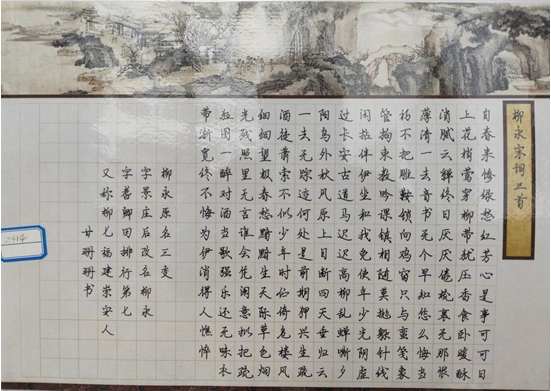 柳永宋词三首
自春来惨绿愁红芳心是事可可日
上花梢莺穿柳带犹压香衾卧暖酥
消腻云亸终日厌厌倦梳裹无那恨
薄情一去音书无个早知恁么悔当
初不把雕鞍锁向鸡窗只与蛮笺象
管拘束教吟课镇相随莫抛躲针线
闲拈伴伊坐和我免使年少光阴虚
过长安古道马迟迟高柳乱蝉嘶夕
阳鸟外秋风原上目断四天垂归云
一去无踪迹何处是前期狎兴生疏
酒徒萧索不似少年时伫倚危楼风
细细望极春愁黯黯生天际草色烟
光残照里无言谁会凭阑意拟把疏
狂图一醉对酒当歌强乐还无味衣
带渐宽终不悔为伊消得人憔悴
柳永原名三变
字景庄后改名柳永
字耆卿因排行第七
又称柳七福建崇安人
甘珊珊书